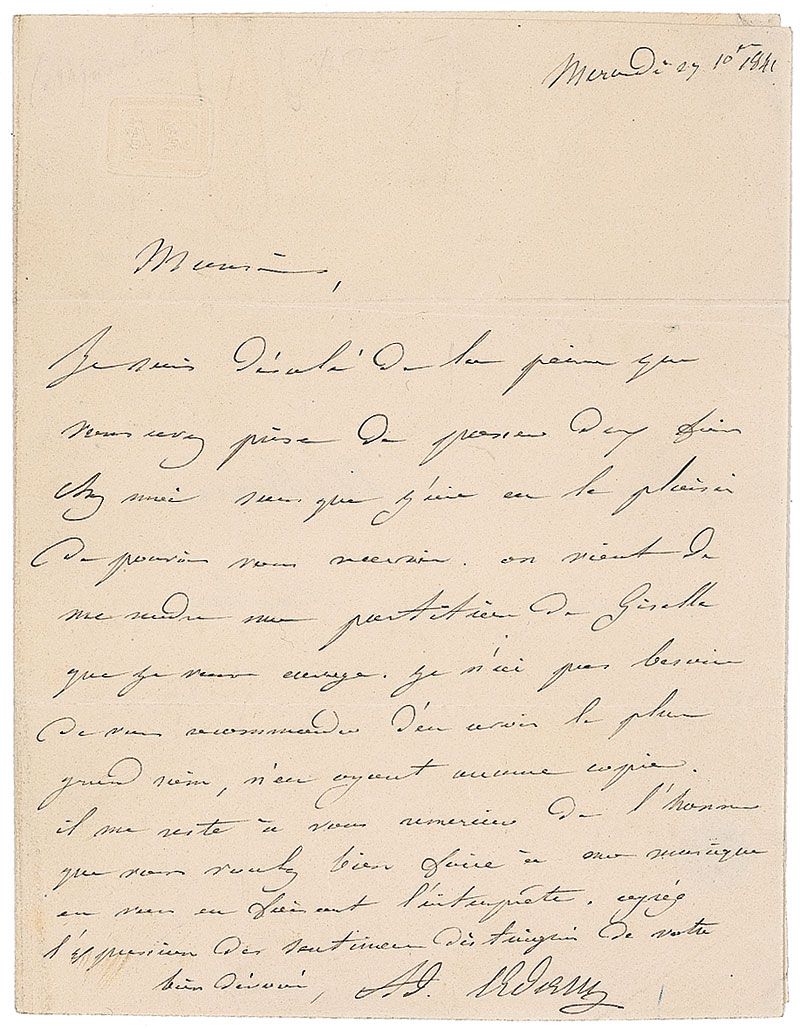 Mercredi 27 10bre 1841
Monsieur,
Je suis désolé de la peine que
vous avez prise de passer deux fois
chez moi sans que j'aie eu le plaisir
de pouvoir vous recevoir. on vient de
me rendre ma partition de Giselle
que je vous envoye. je n'ai pas besoin
de vous recommander d'en avoir le plus
grand soin, n'en ayant aucune copie.
il me reste à vous remercier de l'honneur
que vous voulez bien faire à ma musique
en vous en faisant l'interprète. agréez
l'expression des sentimens distingués de votre
bien dévoué, Ad. Adam